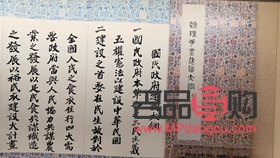 總理手書建國大綱
國民政府建國大綱
一國民政府本革命之三民主義
五權憲法以建設中華民國
二建設之首要在民生故對於
全國人民之食衣住行四大需
要政府當與人民協力共謀農
業之發展以足民食共謀織造
之發展以裕民衣建設大計畫